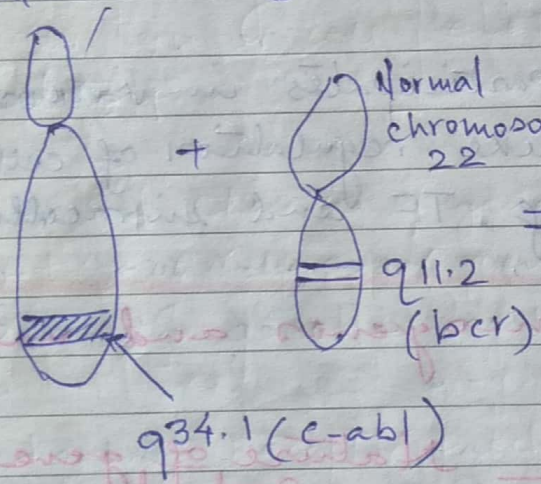 Normal
+
chromoso
22
=
q11.2
(bcr)
q34.1 (c-abl)